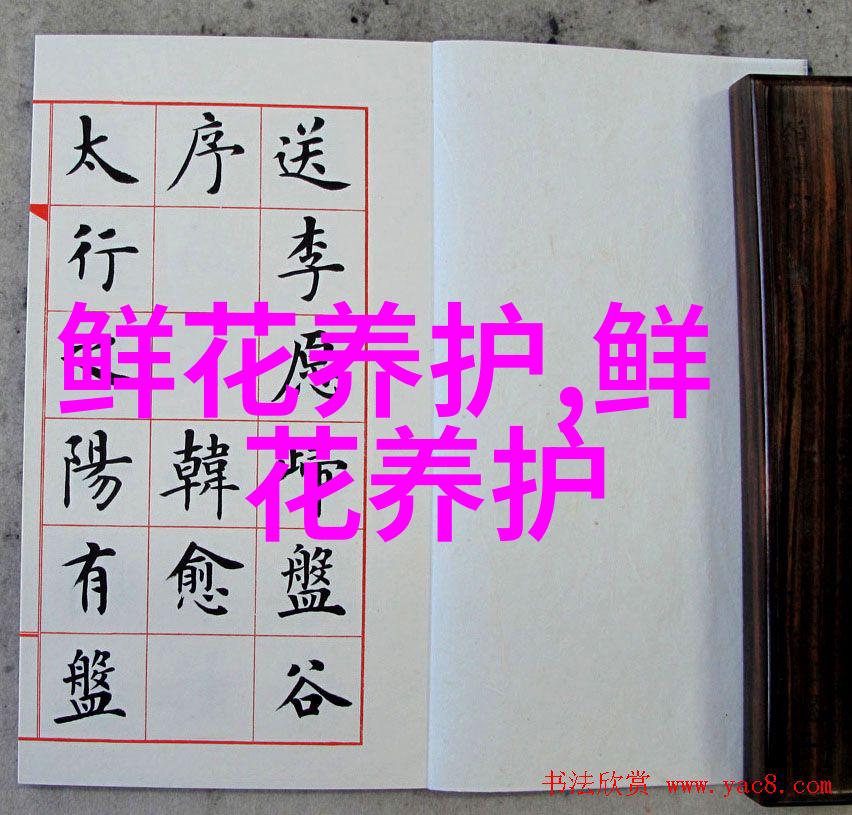 送李愿歸盤谷
序 韓愈
太行之陽有盤
鲜花养护,鲜
花养护
书法欣赏 www.yac8.com